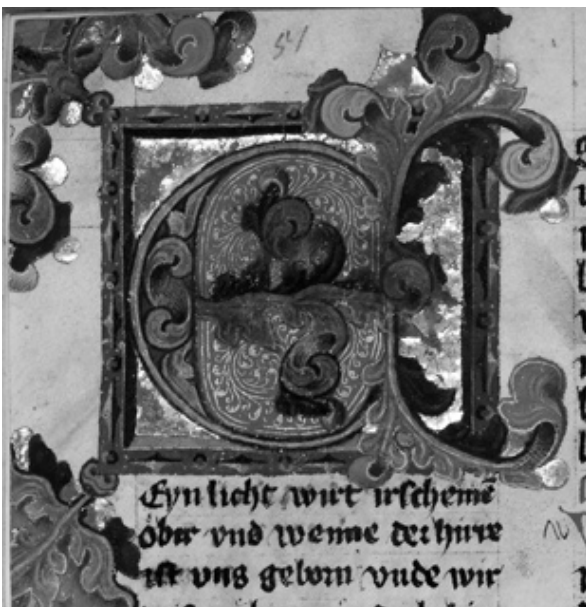 Eyn licht wirt irschemē
obir vnd wenne der hirre
ist vns geborn vnde wir